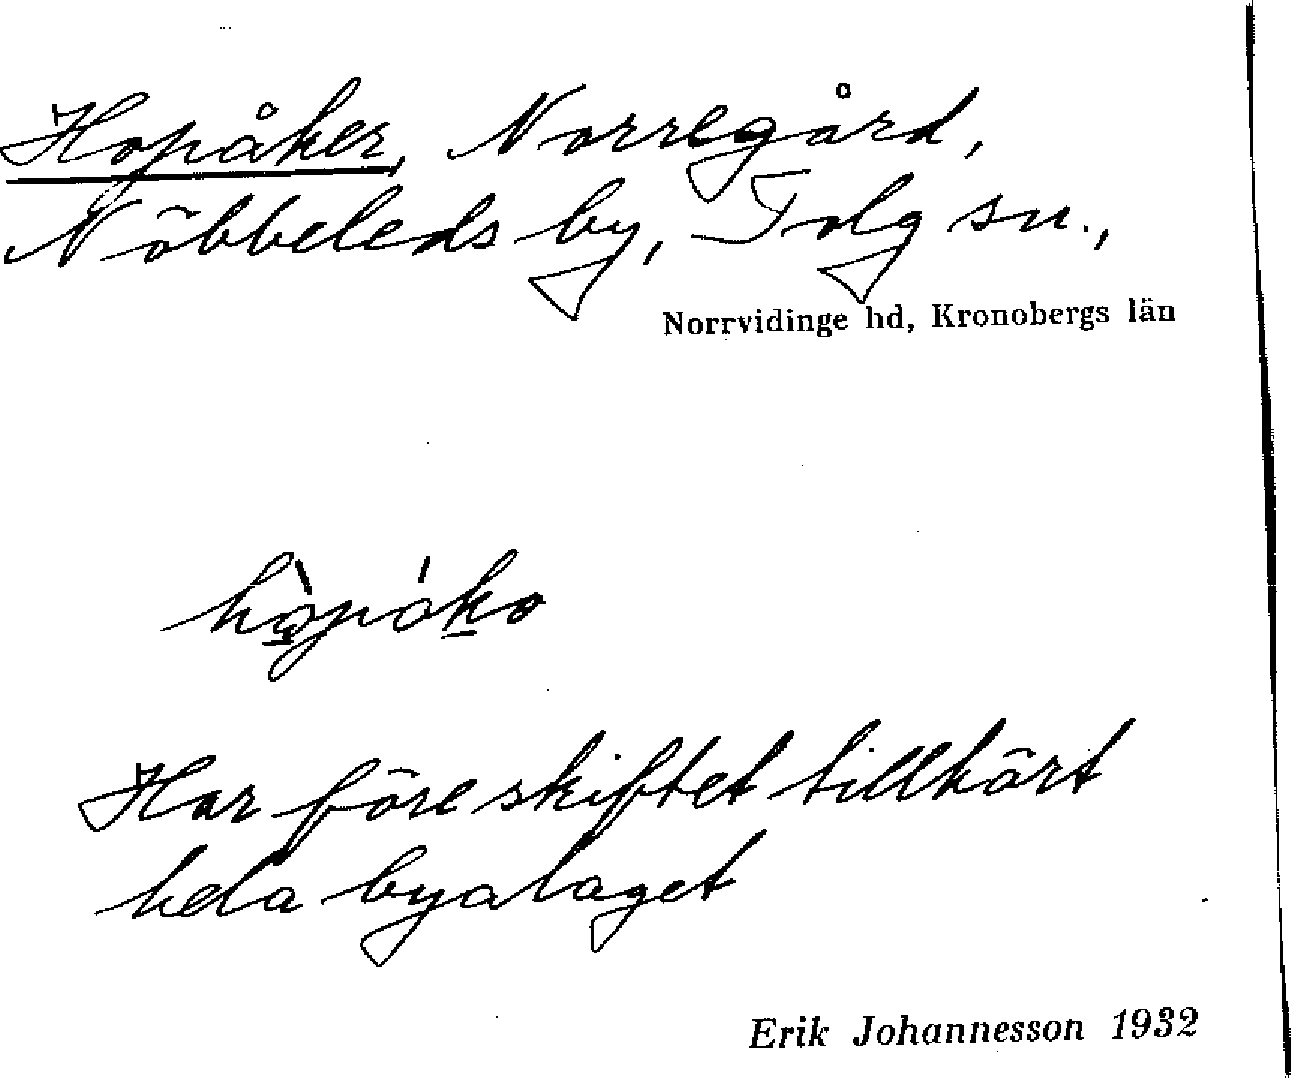 Hopåker, Norregård,
Nöbbeleds by, Tolg sn.,
Norrvidinge hd, Kronobergs län
Har före skiftet tillhört
hela byalaget
Erik Johannesson 1932